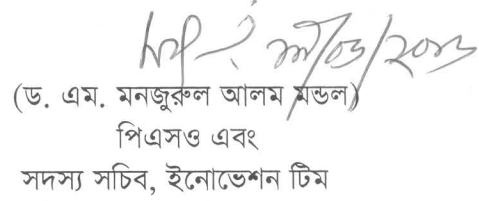 (ড. এম. মনজুরুল আলম মন্ডল)
পিএসও এবং
সদস্য সচিব, ইনোভেশন টিম